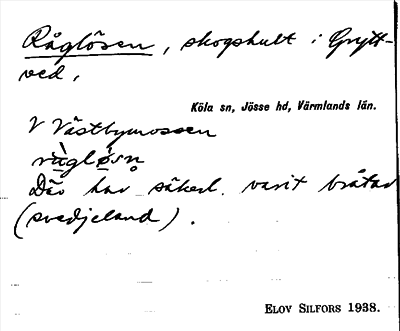 Råglösen, skogshult i Grytt-
ved,
Köla sn, Jösse hd, Värmlands län.
V Västbymossen
rùgløsn̥
Där har säkerl. varit bråtar
(svedjeland).
ELOV SILFORS 1938.